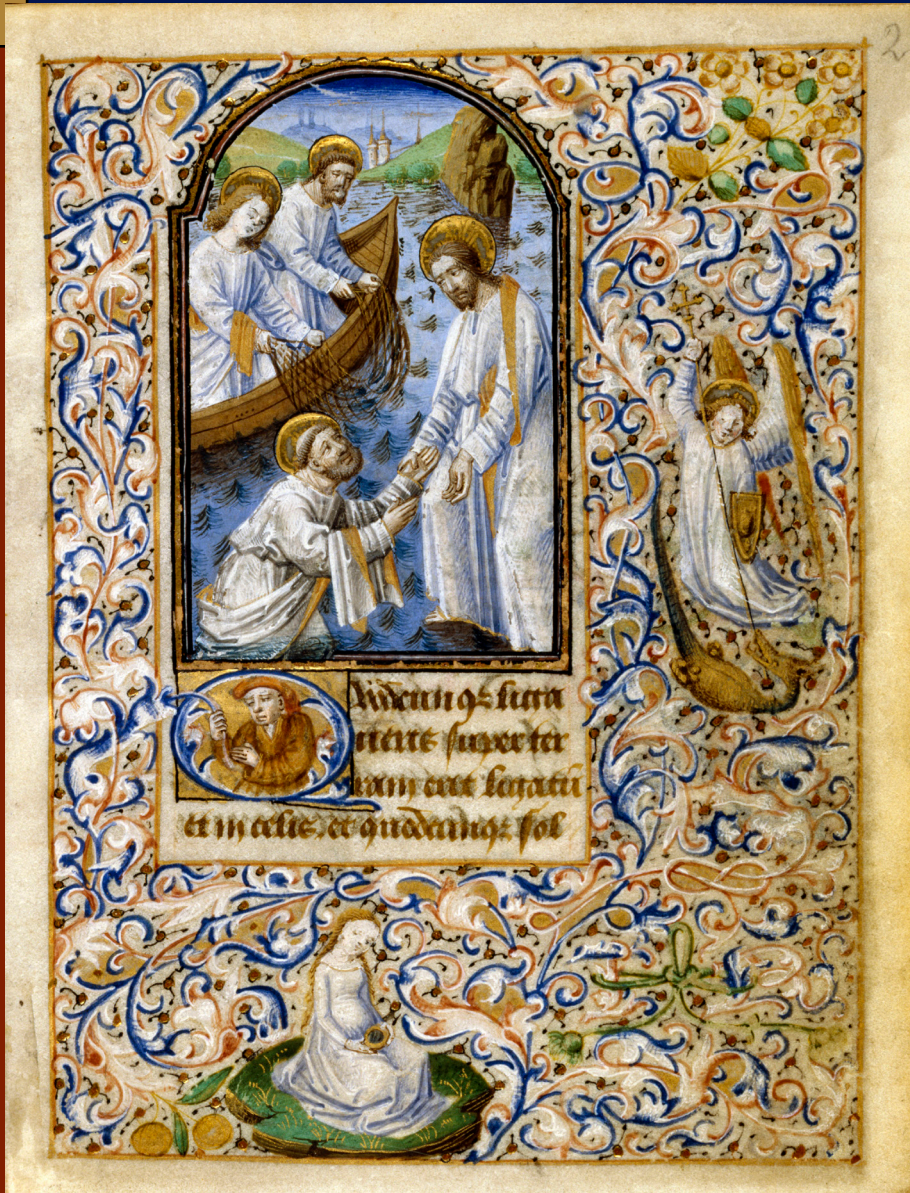 2
Quodcunqꝫ liga
ueris super ter
ram erit ligatū
et in celis. et quodcunqꝫ sol